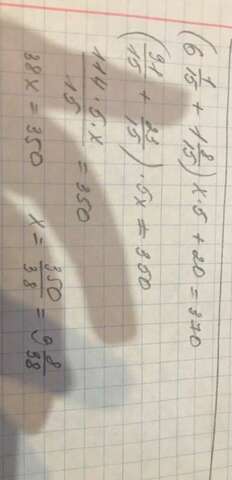 (6 1/15 + 1 8/15) x·5 + 20 = 370
(91/15 + 23/15) · 5x = 350
114·5·x/15 = 350
38x = 350 x = 350/38 = 9 8/38